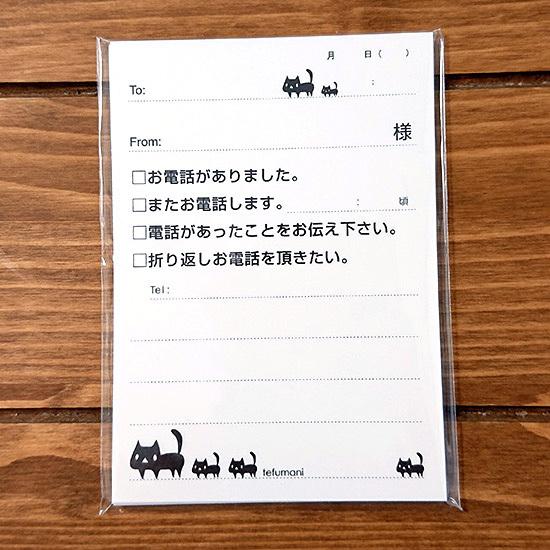 月 日( )
To: :
From: 様
□お電話がありました。
□またお電話します。 : 頃
□電話があったことをお伝え下さい。
□折り返しお電話を頂きたい。
Tel:
tefumani